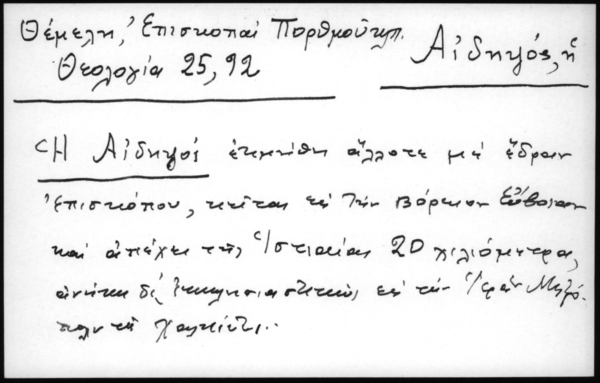 Θέμελη, Ἐπισκοπαὶ Πορθμοῦ κλπ.
Θεολογία 25, 92
Αἰδηψός, ἡ
Ἡ Αἰδηψὸς ἐτιμήθη ἄλλοτε μὲ ἕδραν
Ἐπισκόπου, κεῖται εἰς τὴν βόρειον Εὔβοιαν
καὶ ἀπέχει τῆς Ἱστιαίας 20 χιλιόμετρα,
ἀνήκει δὲ ἐκκλησιαστικῶς εἰς τὴν Ἱερὰν Μητρό-
πολιν τῆς Χαλκίδος.